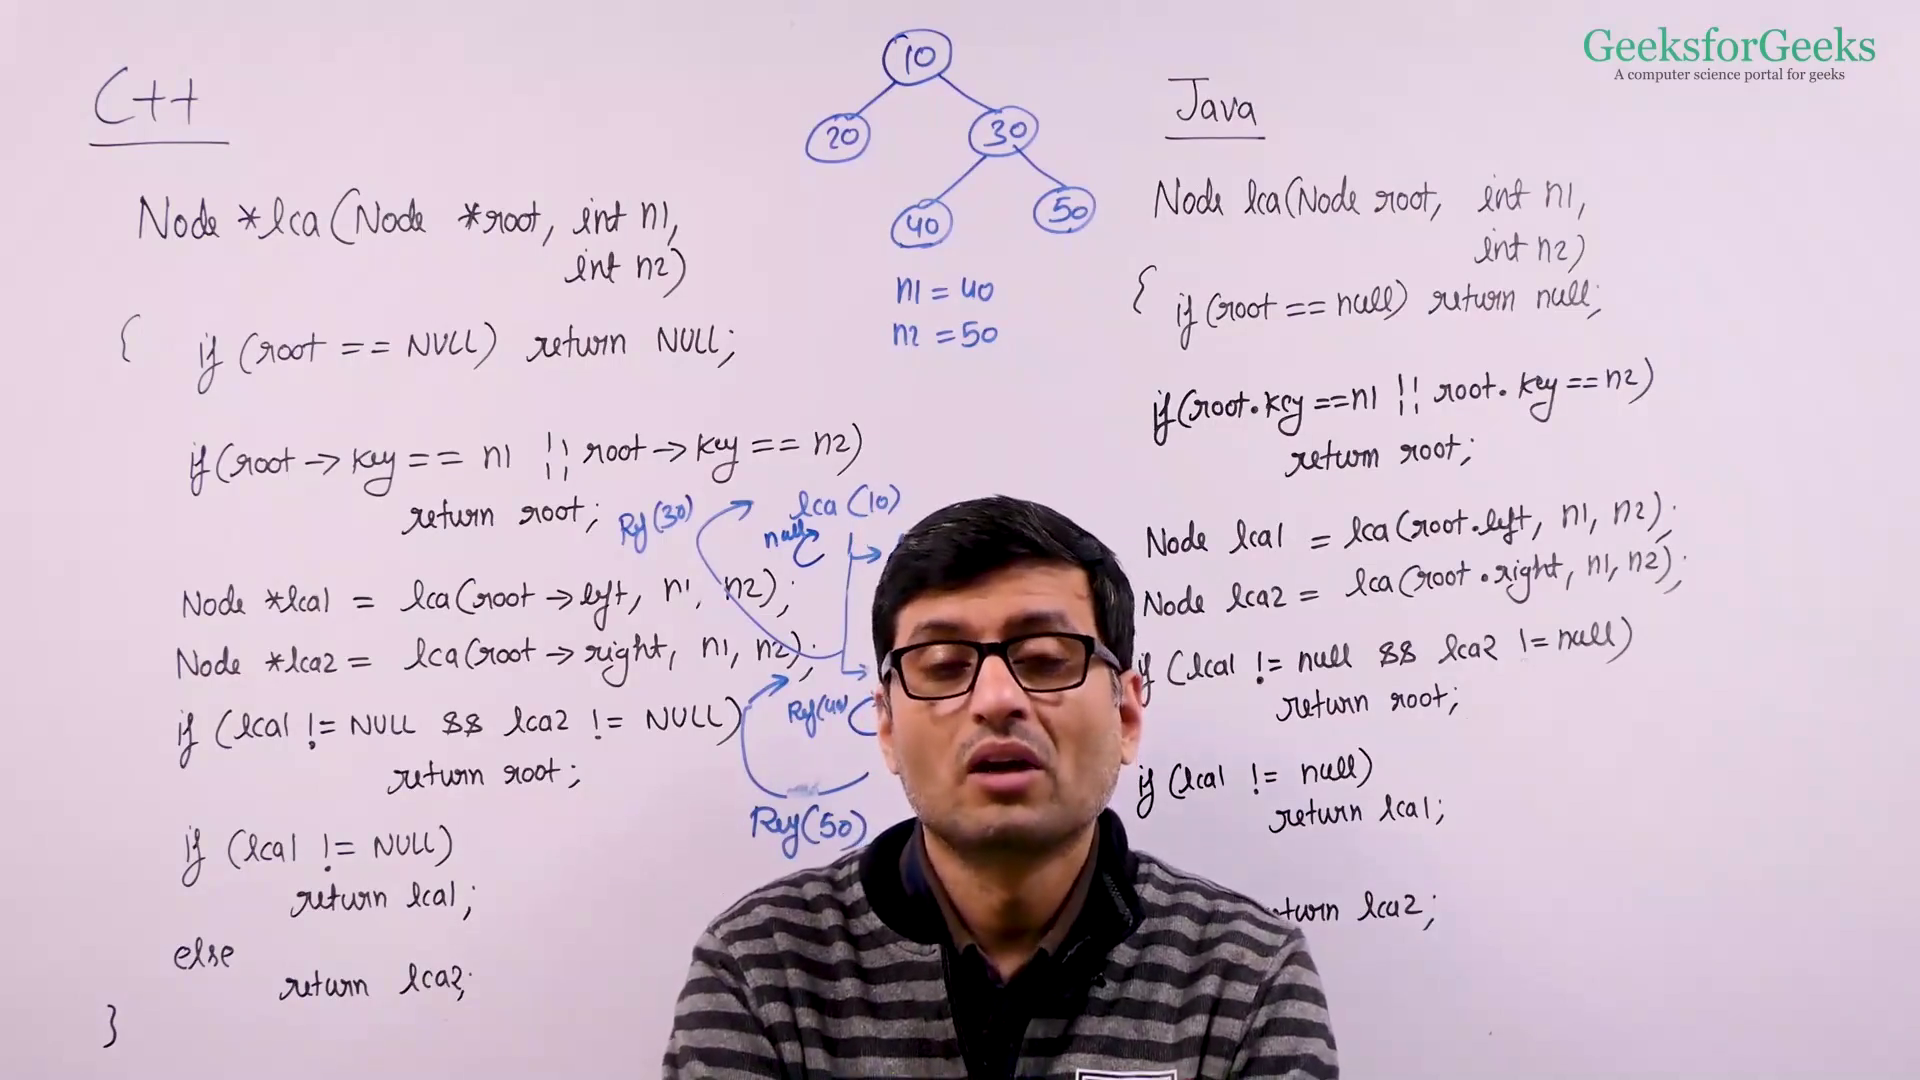 GeeksforGeeks
A computer science portal for geeks
C++
Node *lca(Node *root, int n1,
int n2)
{ if (root == NULL) return NULL;
if(root → key == n1 || root → key == n2)
return root;
Node *lca1 = lca(root → left, n1, n2);
Node *lca2 = lca(root → right, n1, n2);
if (lca1 != NULL && lca2 != NULL)
return root;
if (lca1 != NULL)
return lca1;
else
return lca2;
}
10
20
30
40
50
n1 = 40
n2 = 50
lca (10)
Ref(30)
null
Ref(40)
Ref(50)
Java
Node lca(Node root, int n1,
int n2)
{ if (root == null) return null;
if(root.key == n1 || root.key == n2)
return root;
Node lca1 = lca(root.left, n1, n2);
Node lca2 = lca(root.right, n1, n2);
if (lca1 != null && lca2 != null)
return root;
if (lca1 != null)
return lca1;
lca2;